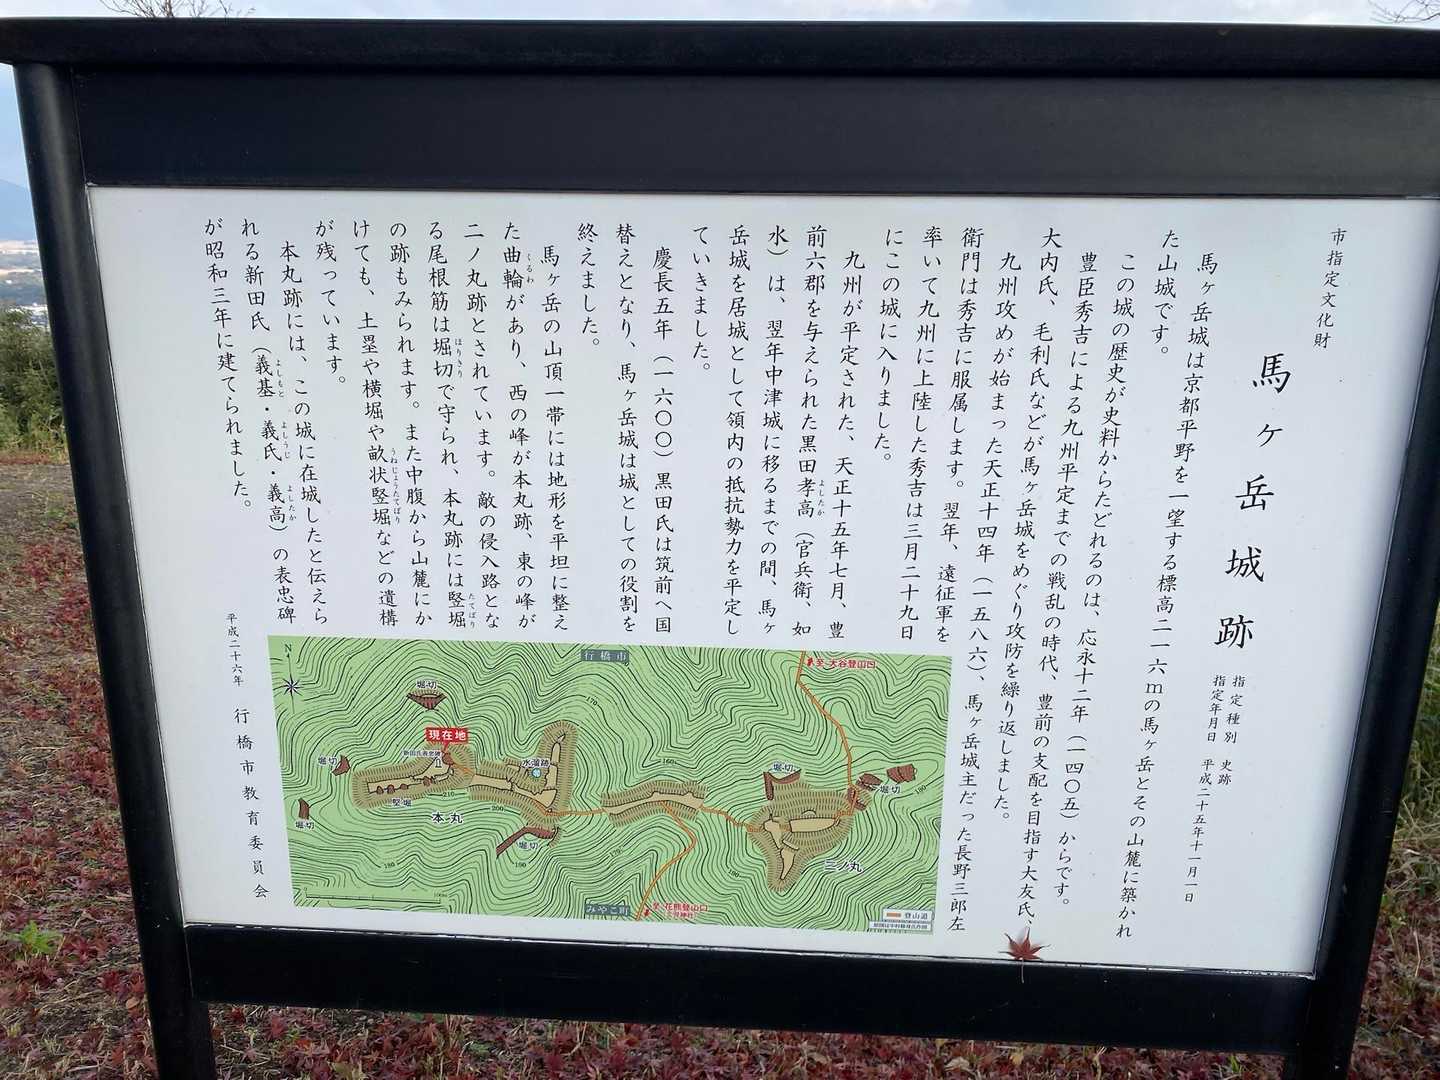 市指定文化財
馬ヶ岳城跡
指定種別　史跡
指定年月日　平成二十五年十一月一日
馬ヶ岳城は京都平野を一望する標高二一六mの馬ヶ岳とその山麓に築かれ
た山城です。
この城の歴史が史料からたどれるのは、応永十二年（一四〇五）からです。
豊臣秀吉による九州平定までの戦乱の時代、豊前の支配を目指す大友氏、
大内氏、毛利氏などが馬ヶ岳城をめぐり攻防を繰り返しました。
九州攻めが始まった天正十四年（一五八六）、馬ヶ岳城主だった長野三郎左
衛門は秀吉に服属します。翌年、遠征軍を
率いて九州に上陸した秀吉は三月二十九日
にこの城に入りました。
九州が平定された、天正十五年七月、豊
前六郡を与えられた黒田孝高（官兵衛、如
よしたか
水）は、翌年中津城に移るまでの間、馬ヶ
岳城を居城として領内の抵抗勢力を平定し
ていきました。
慶長五年（一六〇〇）黒田氏は筑前へ国
替えとなり、馬ヶ岳城は城としての役割を
終えました。
馬ヶ岳の山頂一帯には地形を平坦に整え
た曲輪があり、西の峰が本丸跡、東の峰が
くるわ
二ノ丸跡とされています。敵の侵入路とな
る尾根筋は堀切で守られ、本丸跡には竪堀
ほりきり
たてぼり
の跡もみられます。また中腹から山麓にか
けても、土塁や横堀や畝状竪堀などの遺構
うねじょうたてぼり
が残っています。
本丸跡には、この城に在城したと伝えら
れる新田氏（義基・義氏・義高）の表忠碑
よしもと
よしうじ
よしたか
が昭和三年に建てられました。
平成二十六年　行橋市教育委員会
N
行橋市
至 大谷登山口
堀切
現在地
新田氏表忠碑
水溜跡
堀切
堀切
竪堀
本丸
堀切
堀切
堀切
二ノ丸
170
160
210
200
190
180
190
180
みやこ町
至 花熊登山口
100m
登山道